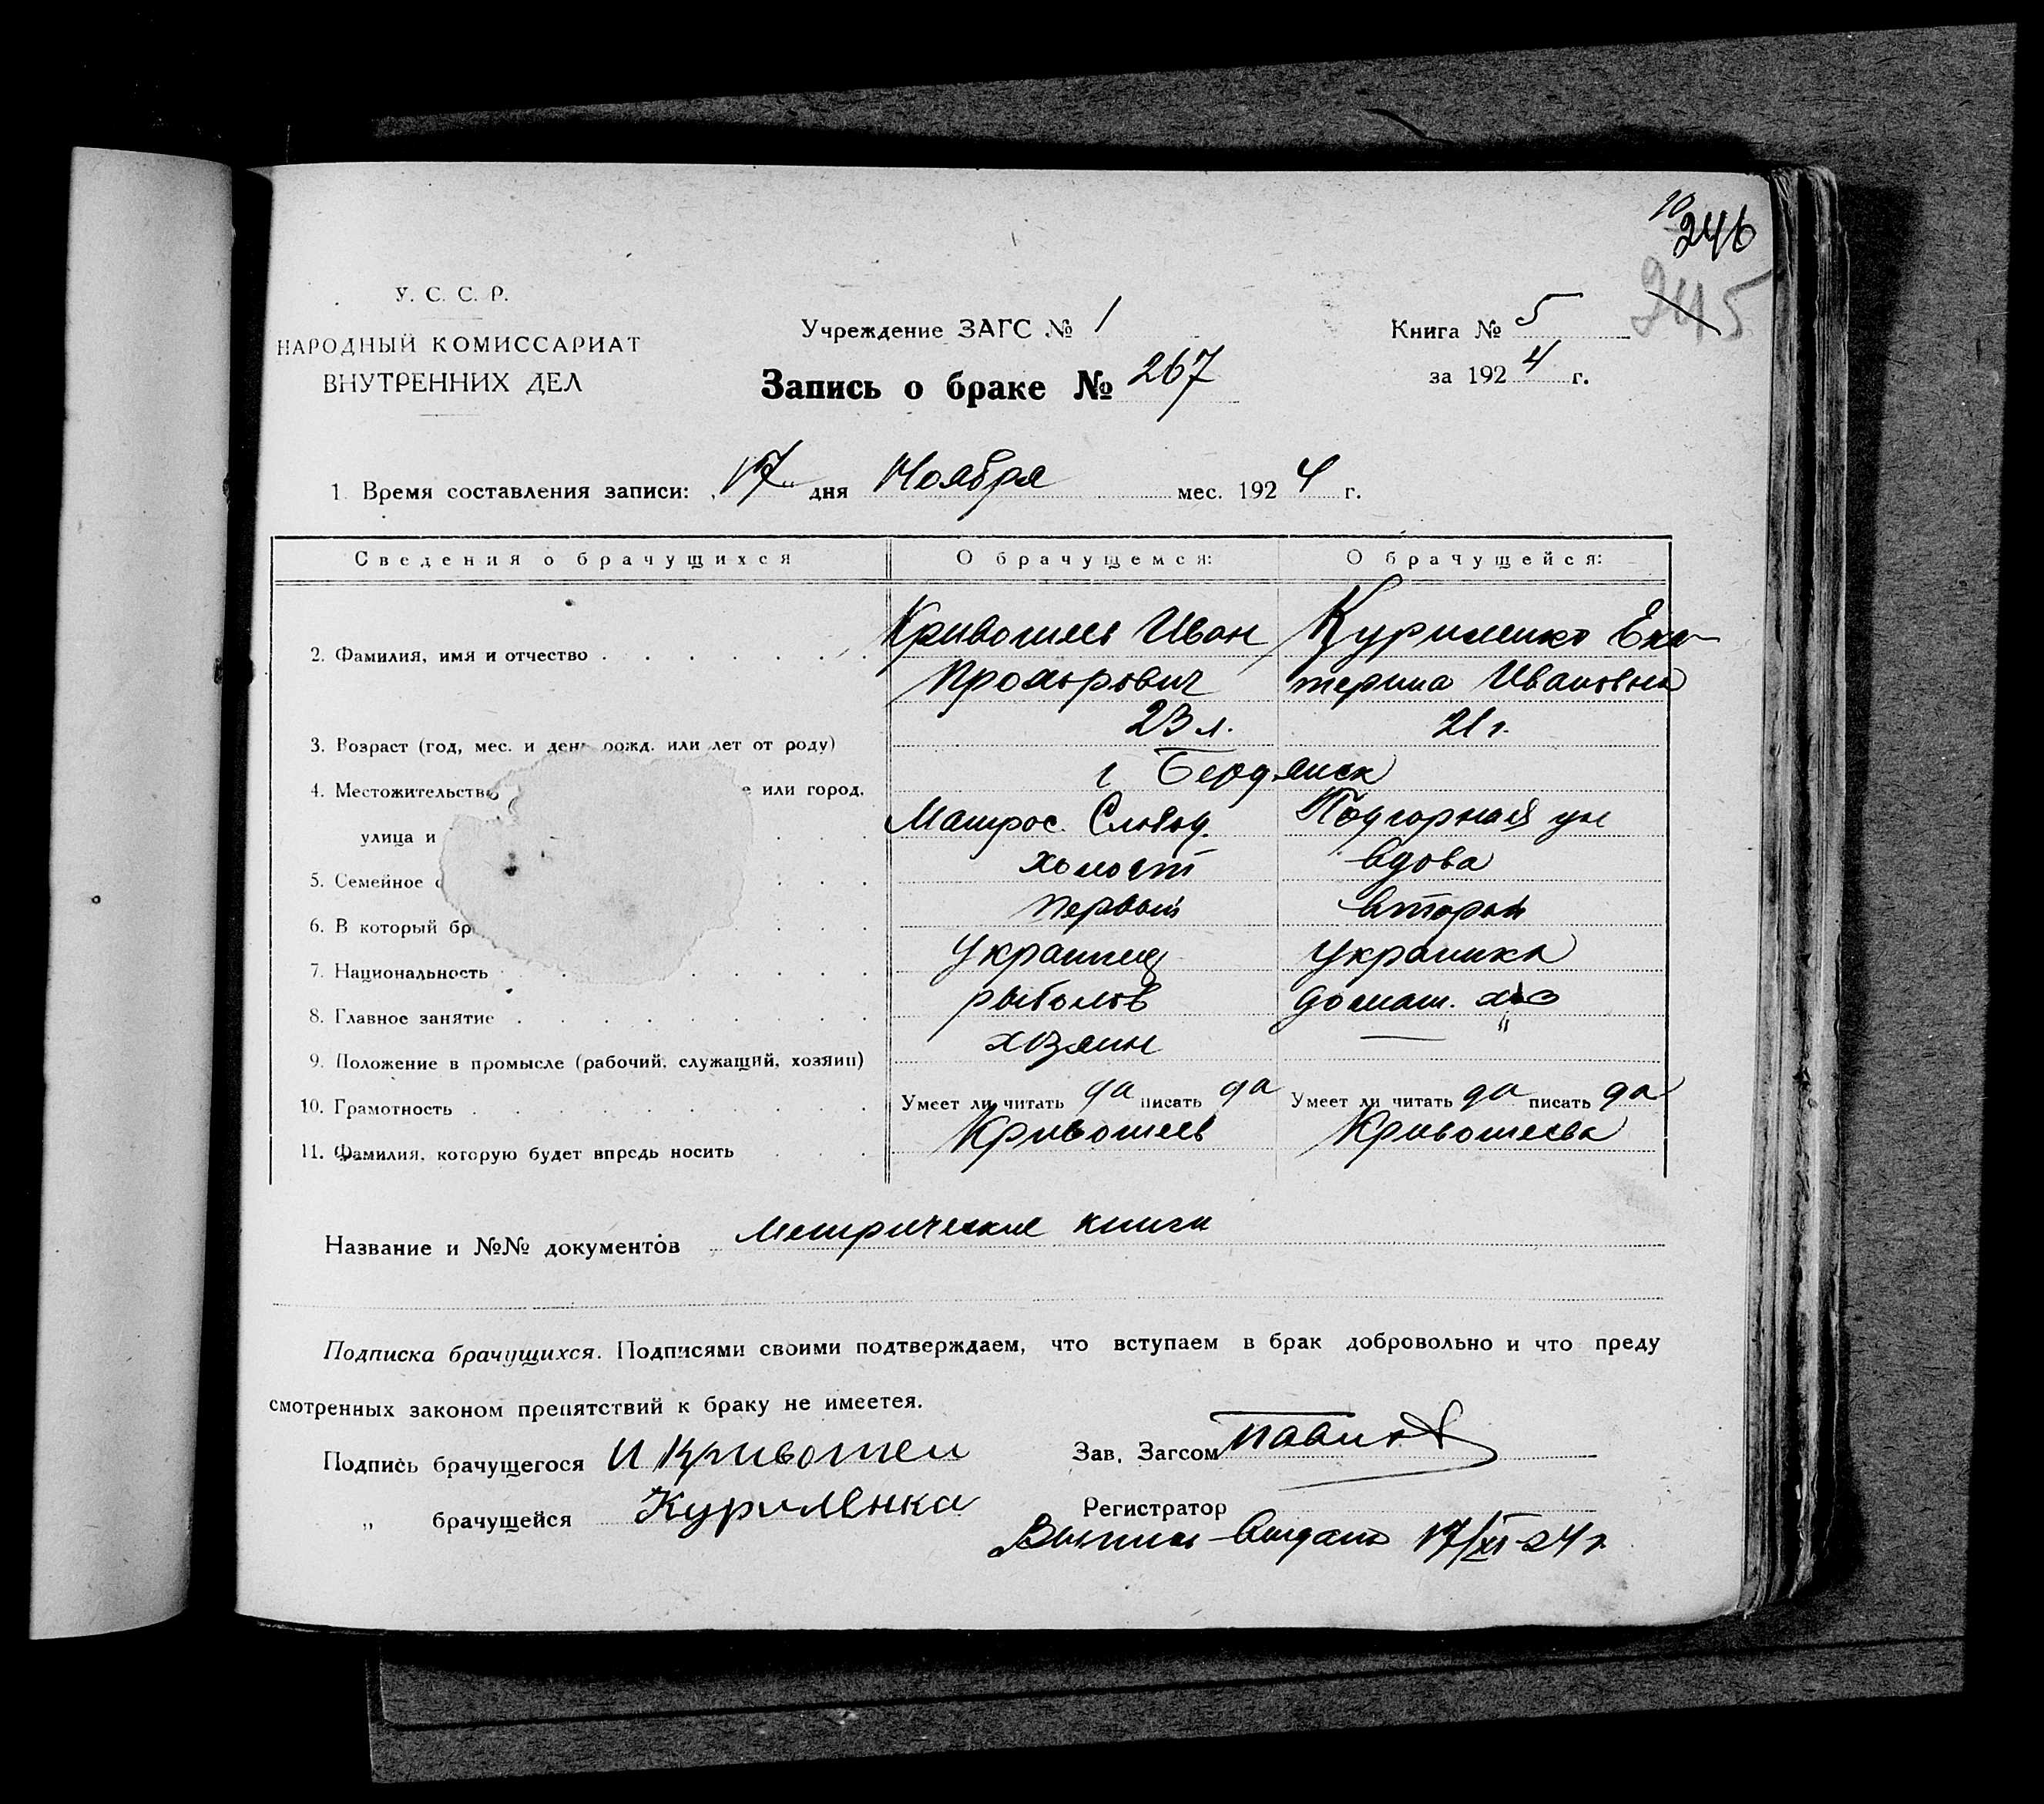 246
245
У. С. С. Р.
НАРОДНЫЙ КОМИССАРИАТ
ВНУТРЕННИХ ДЕЛ
Учреждение ЗАГС № 1
Книга № 5
Запись о браке № 267
за 1924 г.
1. Время составления записи: 17 дня Ноября мес. 1924 г.
Сведения о брачущихся О брачущемся: О брачущейся:
2. Фамилия, имя и отчество Кривошеев Иван Куриленко Ека-
Прохорович терина Ивановна
3. Возраст (год, мес. и день рожд. или лет от роду) 23 л. 21 г.
4. Местожительство е или город, г Бердянск
улица и Матрос. Слобод. Подгорная ул
5. Семейное с холост вдова
6. В который бр первый второй
7. Национальность украинец украинка
8. Главное занятие рыболов домаш. х-во
9. Положение в промысле (рабочий, служащий, хозяин) хозяин —
10. Грамотность Умеет ли читать да писать да Умеет ли читать да писать да
11. Фамилия, которую будет впредь носить Кривошеев Кривошеева
Название и №№ документов Метрические книги
Подписка брачущихся. Подписями своими подтверждаем, что вступаем в брак добровольно и что преду
смотренных законом препятствий к браку не имеетея.
Подпись брачущегося И Кривошеи Зав. Загсом
„ брачущейся Куриленка Регистратор
Выпись выдана 17/XI-24 г.